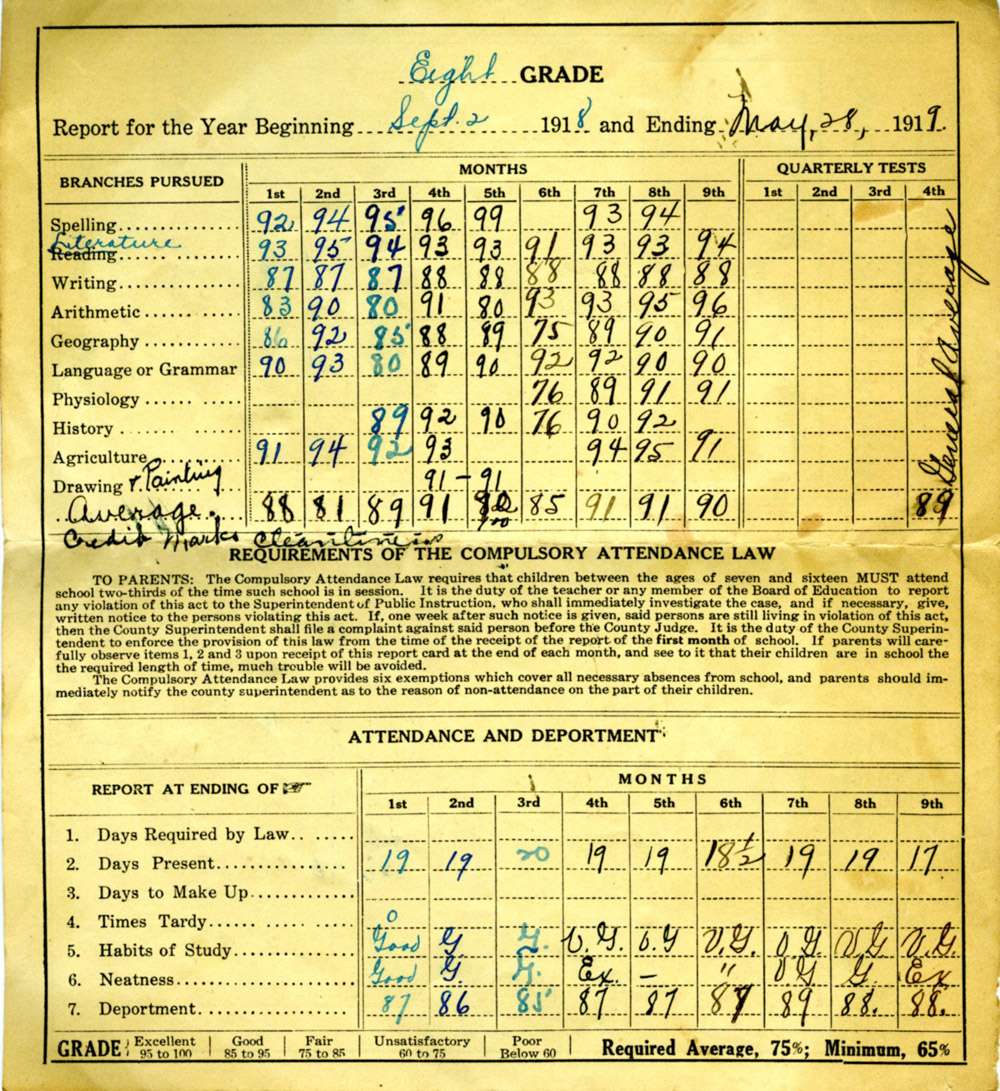 Eight GRADE
Report for the Year Beginning Sept. 2 1918 and Ending May, 28, 1919.
BRANCHES PURSUED MONTHS QUARTERLY TESTS
1st 2nd 3rd 4th 5th 6th 7th 8th 9th 1st 2nd 3rd 4th
Spelling 92 94 95 96 99 93 94
Literature
Reading 93 95 94 93 93 91 93 93 94
Writing 87 87 87 88 88 88 88 88 88
Arithmetic 83 90 80 91 80 93 93 95 96
Geography 86 92 85 88 89 75 89 90 91
Language or Grammar 90 93 80 89 90 92 92 90 90
Physiology 76 89 91 91
History 89 92 90 76 90 92
Agriculture 91 94 92 93 94 95 91
Drawing & Painting 91 - 91
Average. 88 81 89 91 90 85 91 91 90 89
General Average
Credit Marks Cleanliness
REQUIREMENTS OF THE COMPULSORY ATTENDANCE LAW
TO PARENTS: The Compulsory Attendance Law requires that children between the ages of seven and sixteen MUST attend
school two-thirds of the time such school is in session. It is the duty of the teacher or any member of the Board of Education to report
any violation of this act to the Superintendent of Public Instruction, who shall immediately investigate the case, and if necessary, give,
written notice to the persons violating this act. If, one week after such notice is given, said persons are still living in violation of this act,
then the County Superintendent shall file a complaint against said person before the County Judge. It is the duty of the County Superin-
tendent to enforce the provision of this law from the time of the receipt of the report of the first month of school. If parents will care-
fully observe items 1, 2 and 3 upon receipt of this report card at the end of each month, and see to it that their children are in school the
the required length of time, much trouble will be avoided.
The Compulsory Attendance Law provides six exemptions which cover all necessary absences from school, and parents should im-
mediately notify the county superintendent as to the reason of non-attendance on the part of their children.
ATTENDANCE AND DEPORTMENT
REPORT AT ENDING OF MONTHS
1st 2nd 3rd 4th 5th 6th 7th 8th 9th
1. Days Required by Law
2. Days Present 19 19 20 19 19 18 1/2 19 19 17
3. Days to Make Up
4. Times Tardy 0
5. Habits of Study Good G G. V.G. V.G V.G. V.G. V.G V.G.
6. Neatness Good G. G. Ex. — " V G G. Ex
7. Deportment 87 86 85 87 87 87 89 88. 88.
GRADE: Excellent 95 to 100 | Good 85 to 95 | Fair 75 to 85 | Unsatisfactory 60 to 75 | Poor Below 60 | Required Average, 75%; Minimum, 65%